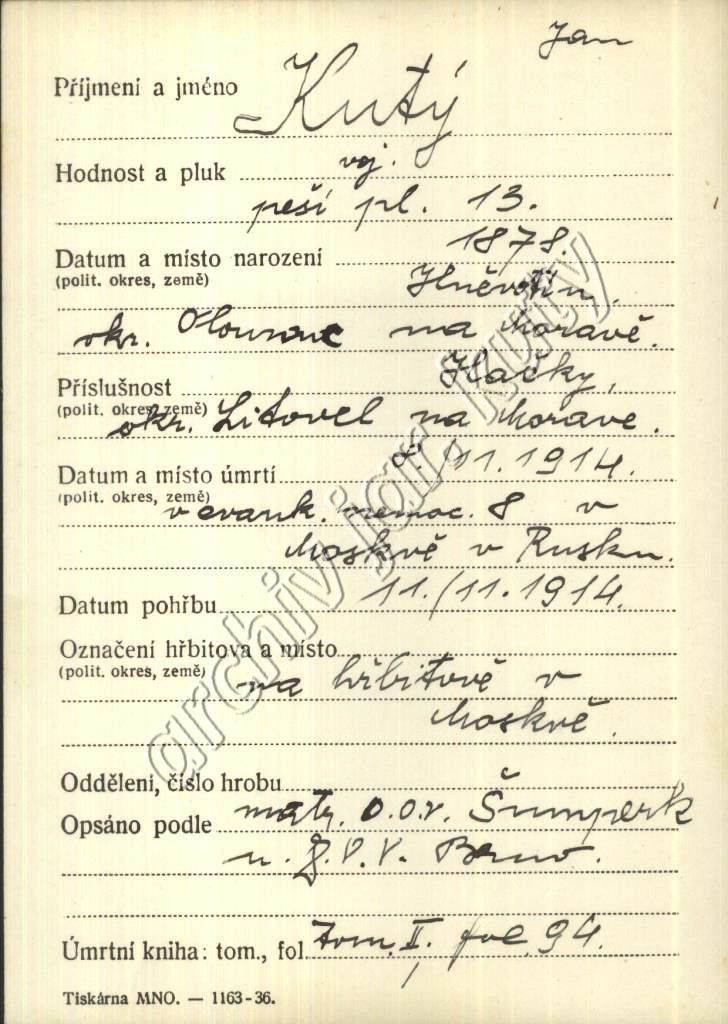 Jan
Příjmení a jméno Kutý
Hodnost a pluk voj.
peší pl. 13.
Datum a místo narození 1878.
(polit. okres, země) Hněvotín,
okr. Olomouc na Moravě.
Příslušnost Hačky,
(polit. okres, země)
okr. Litovel na Morave.
Datum a místo úmrtí 8/11.1914.
(polit. okres, země)
v evank. nemoc. 8 v
Moskvě v Rusku.
Datum pohřbu 11./11.1914.
Označení hřbitova a místo
(polit. okres, země) na hřbitově v
Moskvě.
Oddělení, číslo hrobu
Opsáno podle matr. D.O.V. Šumperk
Brno.
Úmrtní kniha: tom., fol. tom. II, fol. 94.
Tiskárna MNO. — 1163-36.
archiv jar. kutý